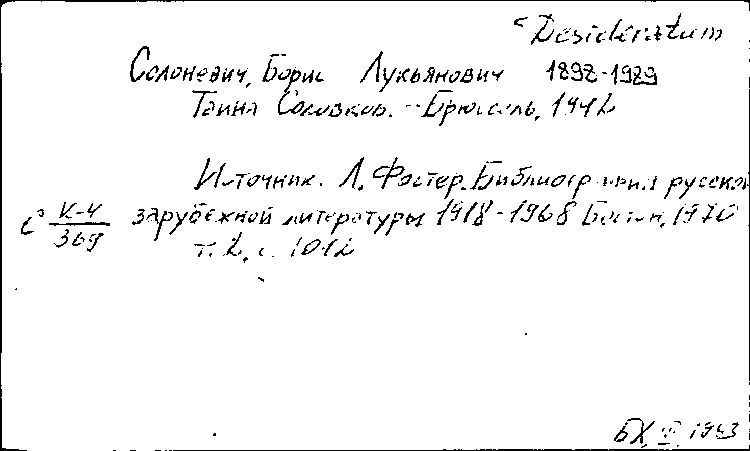 Desideratum
Солоневич, Борис Лукьянович 1898-1989
Тайна Соловков. - Брюссель, 1942
Источник. Л. Фостер. Библиография русской
С К-4/369 зарубежной литературы 1918-1968 Бостон, 1970
т. 2, с. 1012
БХ 1983